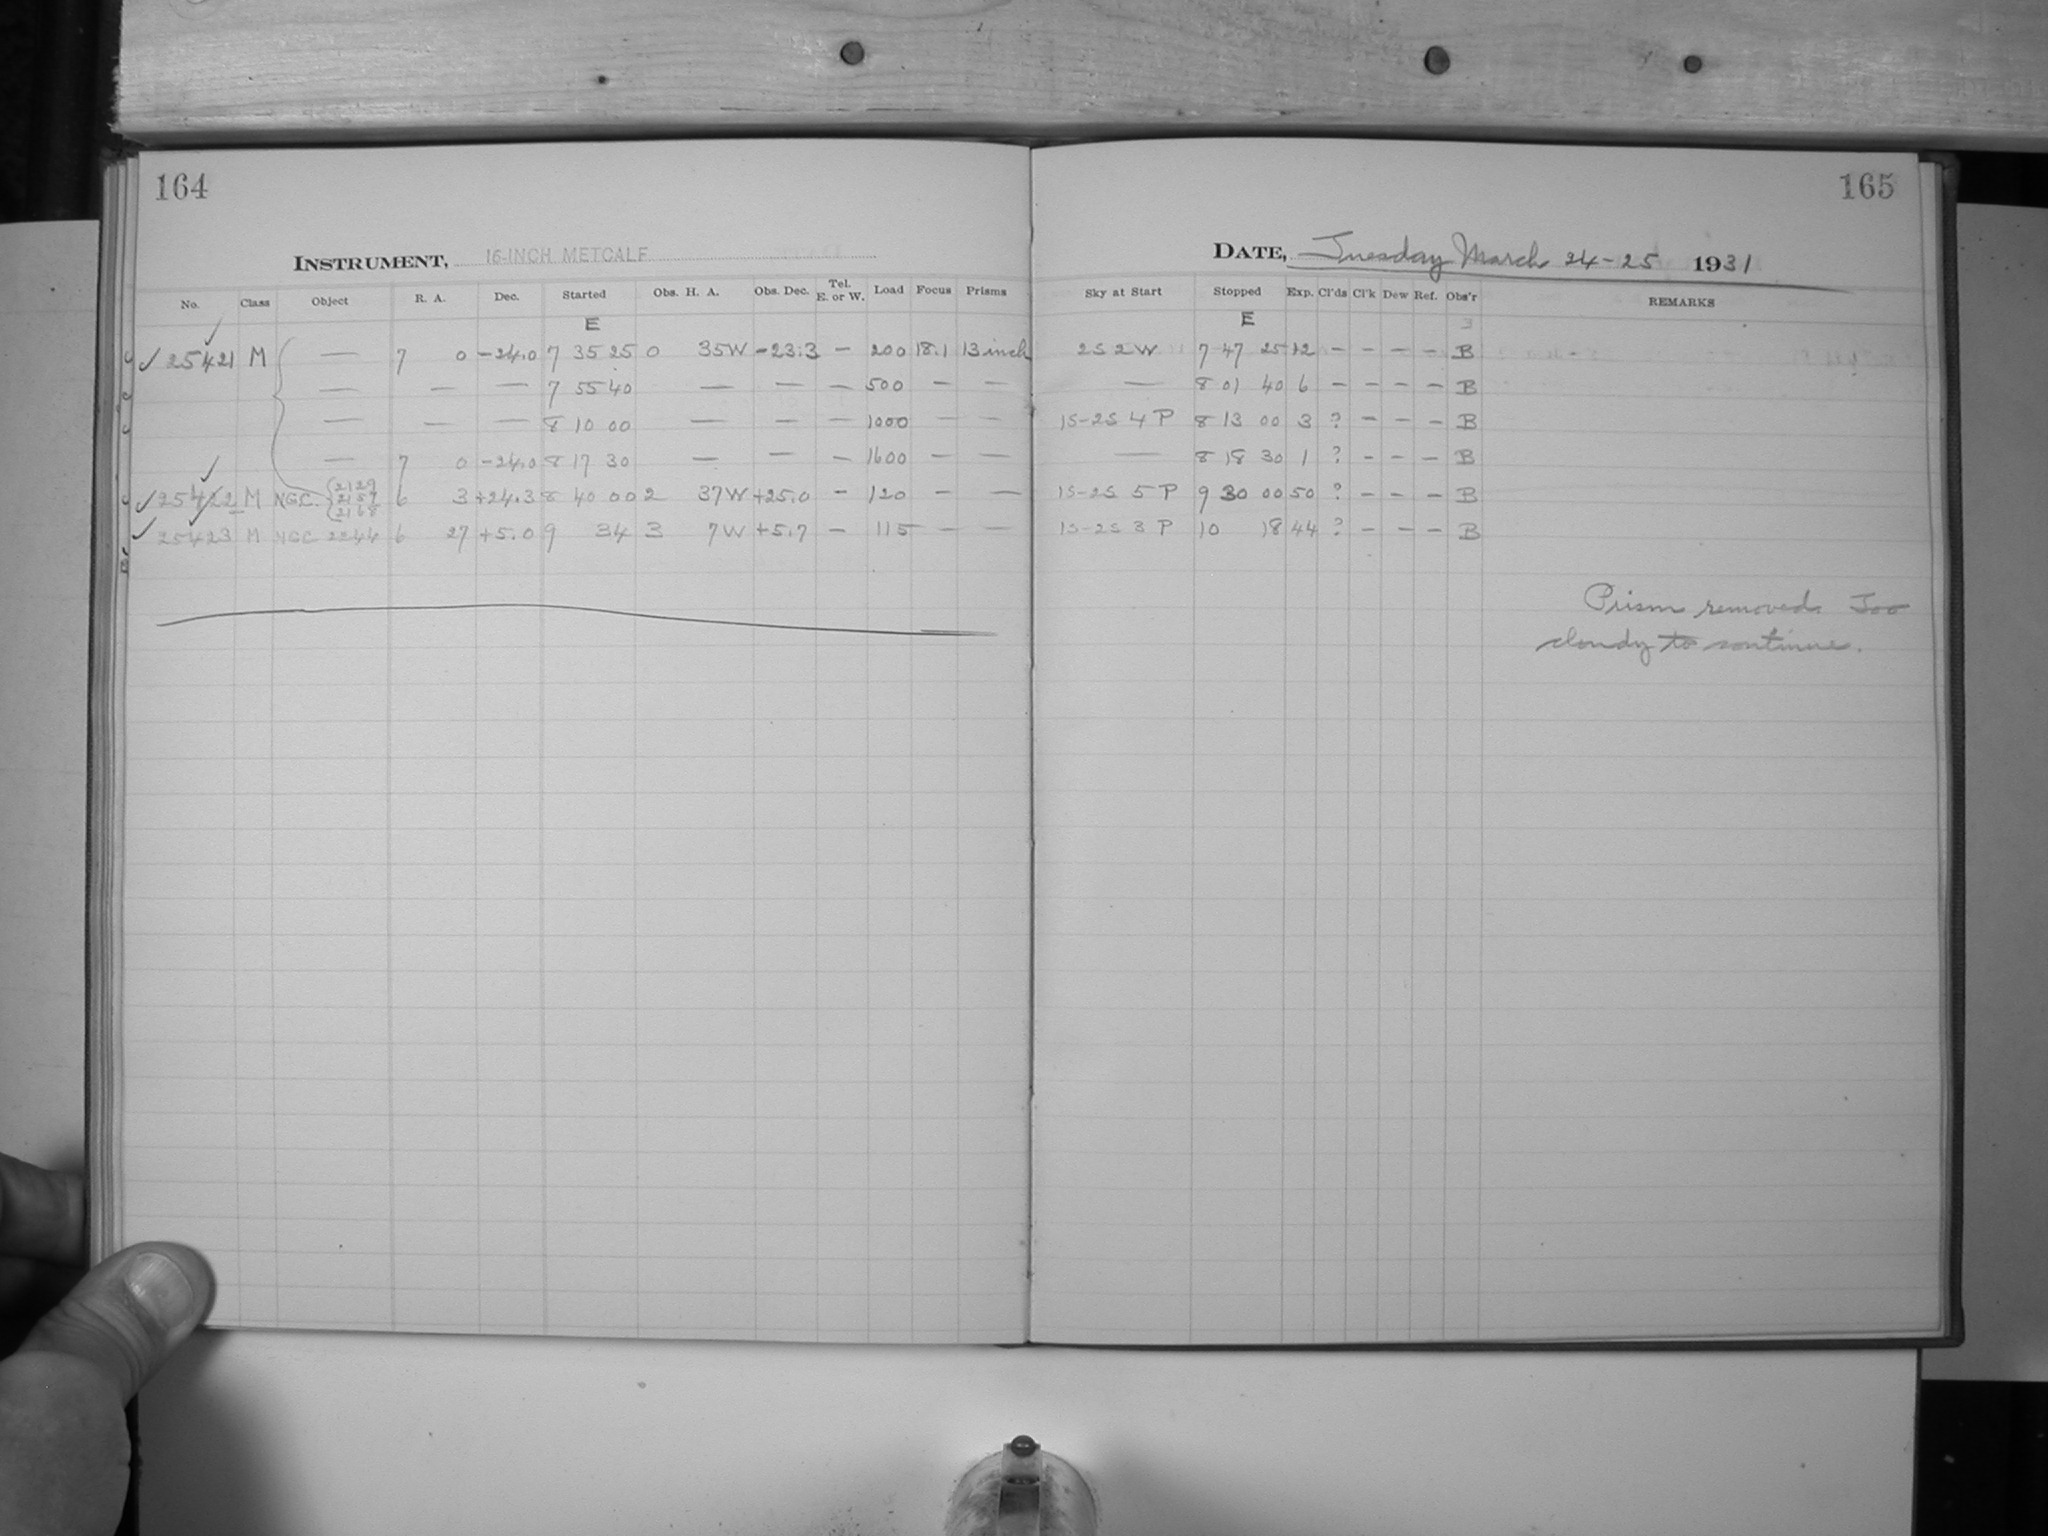 164
INSTRUMENT, 16-INCH METCALF
No. Class Object R. A. Dec. Started Obs. H. A. Obs. Dec. Tel. E. or W. Load Focus Prisms
E
25421 M — 7 0 -24.0 7 35 25 0 35W -23.3 — 200 18.1 13 inch
— — — 7 55 40 — — — 500 — —
— — — 8 10 00 — — — 1000 — —
— 7 0 -24.0 8 17 30 — — — 1600 — —
25422 M NGC {2129 2157 2168 6 3 +24.3 8 40 00 2 37W +25.0 — 120 — —
25423 M NGC 2244 6 27 +5.0 9 34 3 7W +5.7 — 115 — —
165
DATE, Tuesday March 24-25 1931
Sky at Start Stopped Exp. Cl'ds Cl'k Dew Ref. Obs'r REMARKS
E
2S 2W 7 47 25 12 — — — — B
— 8 01 40 6 — — — — B
1S-2S 4 P 8 13 00 3 ? — — — B
— 8 18 30 1 ? — — — B
1S-2S 5 P 9 30 00 50 ? — — — B
1S-2S 3 P 10 18 44 ? — — — B
Prism removed. Too
cloudy to continue.